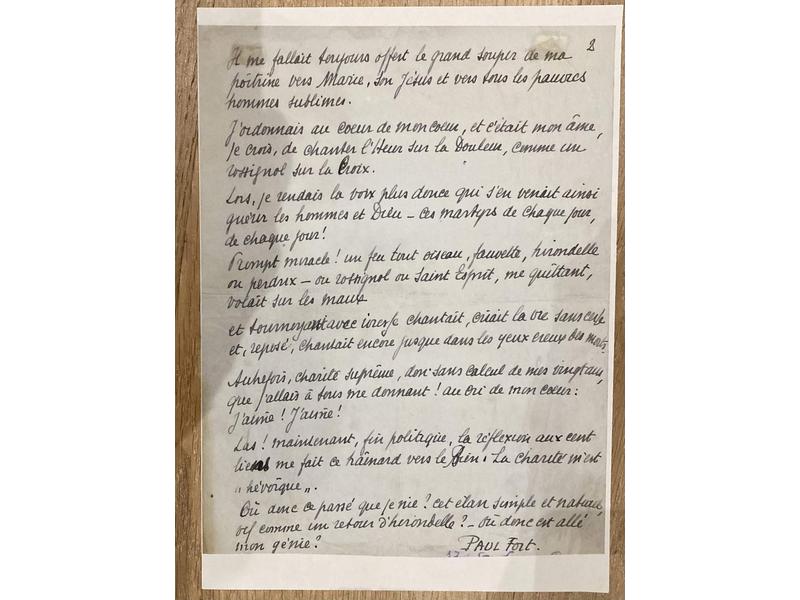 2
Il me fallait toujours offert le grand soupir de ma
poitrine vers Marie, son Jésus et vers tous les pauvres
hommes sublimes.
J'ordonnais au coeur de mon coeur, et c'était mon âme,
je crois, de chanter l'Heur sur la Douleur, comme un
rossignol sur la Croix.
Lors, je rendais la voix plus douce qui s'en venait ainsi
guérir les hommes et Dieu – ces martyrs de chaque jour,
de chaque jour!
Prompt miracle! un feu tout oiseau, fauvette, hirondelle
ou perdrix – ou rossignol ou Saint Esprit, me quittant,
volait sur les maux
et tournoyant avec ivresse chantait, criait la vie sans cesse
et, reposé, chantait encore jusque dans les yeux creux des morts.
Autrefois, charité suprême, don sans calcul de mes vingt ans,
que j'allais à tous me donnant! au cri de mon coeur:
J'aime! J'aime!
Las! maintenant, fin politique, la réflexion aux cent
liens me fait ce hagard vers le Bien. La charité m'est
"héroïque".
Où donc ce passé que je nie? cet élan simple et naturel,
vif comme un retour d'hirondelle? – où donc est allé
mon génie?
PAUL FORT.